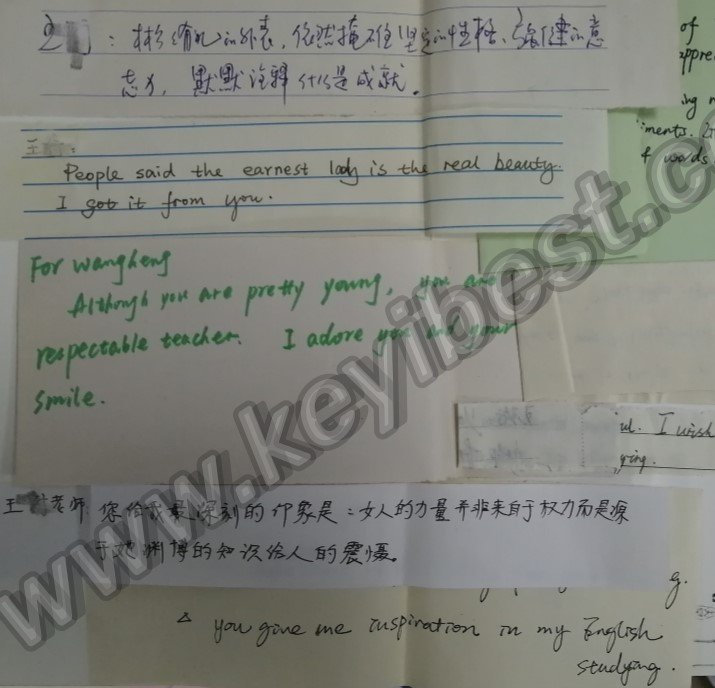 王 : 林 绮 的外表，依然掩不住坚定的性格、强健的意
志力，默默注释什么是成就。
of
appre
ing
iments.
4 words
王 :
People said the earnest lady is the real beauty.
I got it from you.
For wangheng
Although you are pretty young, you are
respectable teacher. I adore you and your
smile.
ul. I wish
ying.
王 老师：您给我最深刻的印象是：女人的力量并非来自于权力而是源
于她渊博的知识给人的震慑。
g.
△ you give me inspiration in my English
studying.
www.keyibest.c